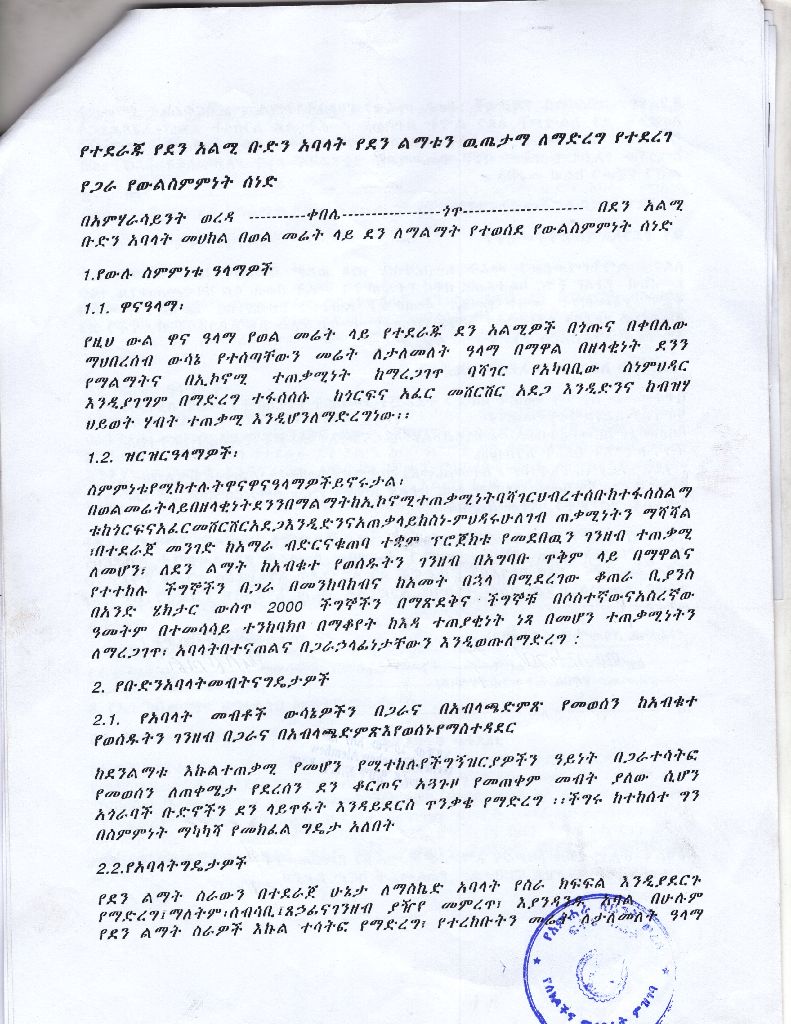 የተደራጁ የደን አልሚ ቡድን አባላት የደን ልማቱን ዉጤታማ ለማድረግ የተደረገ
የጋራ የውልስምምነት ሰነድ
በአምሃራሳይንት ወረዳ ----------ቀበሌ-----------------ጎጥ--------------------- በደን አልሚ
ቡድን አባላት መሀከል በወል መሬት ላይ ደን ለማልማት የተወሰደ የውልስምምነት ሰነድ
1.የውሉ ስምምነቱ ዓላማዎች
1.1. ዋናዓላማ፡
የዚህ ውል ዋና ዓላማ የወል መሬት ላይ የተደራጁ ደን አልሚዎች በጎጡና በቀበሌው
ማህበረሰብ ውሳኔ የተሰጣቸውን መሬት ለታለመለት ዓላማ በማዋል በዘላቂነት ደንን
የማልማትና በኢኮኖሚ ተጠቃሚነት ከማረጋገጥ ባሻገር የአካባቢው ስነምህዳር
እንዲያገግም በማድረግ ተፋሰሱ ከጎርፍና አፈር መሸርሸር አደጋ እንዲድንና ከብዝሃ
ህይወት ሃብት ተጠቃሚ እንዲሆንለማድረግነው፡፡
1.2. ዝርዝርዓላማዎች፡
ስምምነቱየሚከተሉትዋናዋናዓላማዎችይኖሩታል፡
በወልመሬትላይበዘላቂነትደንንበማልማትከኢኮኖሚተጠቃሚነትባሻገርህብረተሰቡከተፋሰስልማ
ቱከጎርፍናአፈርመሸርሸርአደጋእንዲድንናአጠቃላይከስነ-ምህዳሩሁለገብ ጠቃሚነትን ማሻሻል
፣በተደራጀ መንገድ ከአማራ ብድርናቁጠባ ተቋም ፕሮጀክቱ የመደበዉን ገንዘብ ተጠቃሚ
ለመሆን፣ ለደን ልማት ከአብቁተ የወሰዱትን ገንዘብ በአግባቡ ጥቅም ላይ በማዋልና
የተተከሉ ችግኞችን በጋራ በመንከባከብና ከአመት በኋላ በሚደረገው ቆጠራ ቢያንስ
በአንድ ሄክታር ውስጥ 2000 ችግኞችን በማጽደቅና ችግኞቹ በሶስተኛውናአስረኛው
ዓመትም በተመሳሳይ ተንከባክቦ በማቆየት ከእዳ ተጠያቂነት ነጻ በመሆን ተጠቃሚነትን
ለማረጋገጥ፣ አባላትበተናጠልና በጋራኃላፊነታቸውን እንዲወጡለማድረግ ፡
2. የቡድንአባላትመብትናግዴታዎች
2.1. የአባላት መብቶች ውሳኔዎችን በጋራና በአብላጫድምጽ የመወሰን ከአብቁተ
የወሰዱትን ገንዘብ በጋራና በአብላጫድምጽእየወሰኑየማስተዳደር
ከደንልማቱ እኩልተጠቃሚ የመሆን የሚተከሉየችግኝዝርያዎችን ዓይነት በጋራተሳትፎ
የመወሰን ለጠቀሜታ የደረሰን ደን ቆርጦና አጓጉዞ የመጠቀም መብት ያለው ሲሆን
አጎራባች ቡድኖችን ደን ላይጥፋት እንዳይደርስ ጥንቃቄ የማድረግ ፡፡ችግሩ ከተከሰተ ግን
በስምምነት ማካካሻ የመክፈል ግዴታ አለበት
2.2.የአባላትግዴታዎች
የደን ልማት ስራውን በተደራጀ ሁኔታ ለማስኬድ አባላት የስራ ክፍፍል እንዲያደርጉ
የማድረግ፤ማለትም፡ሰብሳቢ፤ጸኃፊናገንዘብ ያዥየ መምረጥ፣ እያንዳንዱ አባል በሁሉም
የደን ልማት ስራዎች እኩል ተሳትፎ የማድረግ፣ የተረከቡትን መሬት ለታለመለት ዓላማ